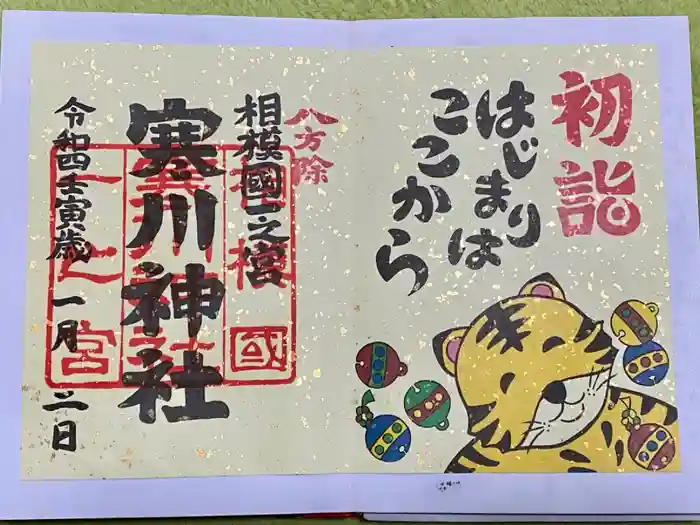 初詣
はじまりは
ここから
八方除
相模國一之宮
寒川神社
令和四壬寅歳 一月 三日
相模國
一之宮